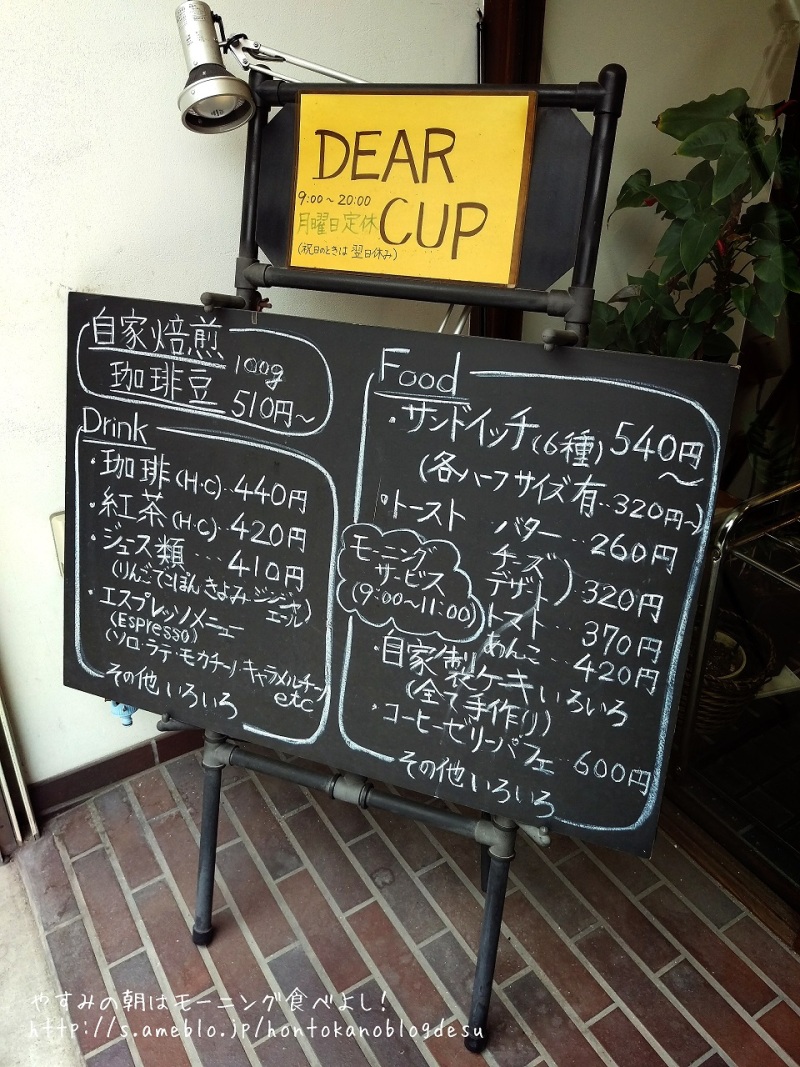 DEAR
CUP
9:00～20:00
月曜日定休
(祝日のときは翌日休み)
自家焙煎
珈琲豆
100g
510円～
Drink
・珈琲(H・C)‥440円
・紅茶(H・C)‥420円
・ジュース類‥‥410円
(りんご でこぽん きよみ ジンジャーエール)
・エスプレッソメニュー
(Espresso)
(ソロ・ラテ・モカチーノ・キャラメルチーノ
etc
その他いろいろ
Food
・サンドイッチ(6種) 540円～
(各ハーフサイズ有‥320円～)
・トースト バター‥260円
チーズ
デザート 320円
トースト‥370円
あんこ‥420円
モーニング
サービス
(9:00～11:00)
・自家製ケーキいろいろ
(全て手作り)
・コーヒーゼリーパフェ‥600円
その他いろいろ
やすみの朝はモーニング食べよし！
http://s.ameblo.jp/hontokanoblogdesu